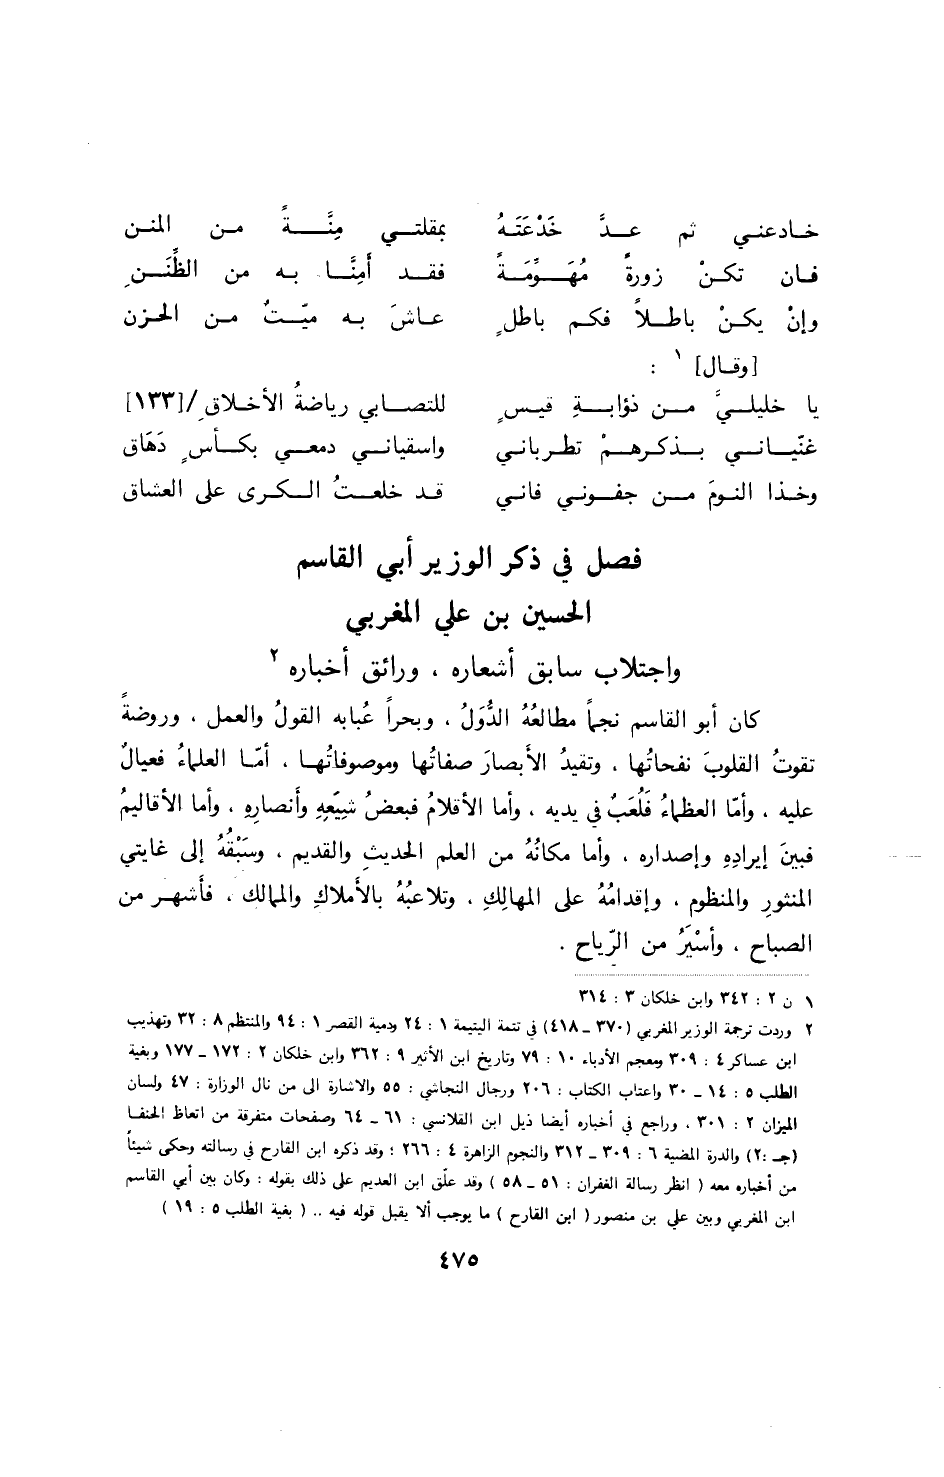 خادعني ثم عدَّ خَدْعَتَهُ بمقلتي مِنَّةً من المنن
فان تكنْ زورةً مُهَوِّمَةً فقد أمِنَّا به من الظَّنَنِ
وإنْ يكنْ باطلاً فكم باطلٍ عاشَ به ميّتٌ من الحزن
[وقال] ١ :
يا خليليَّ من ذؤابةِ قيسٍ للتصابي رياضةُ الأخلاقِ/[١٣٣]
غنّياني بذكرهمْ تطرباني واسقياني دمعي بكأسٍ دَهَاق
وخذا النومَ من جفوني فاني قد خلعتُ الكرى على العشاق
فصل في ذكر الوزير أبي القاسم
الحسين بن علي المغربي
واجتلاب سابق أشعاره ، ورائق أخباره ٢
كان أبو القاسم نجماً مطالعُهُ الدُّوَلُ ، وبحراً عُبابه القولُ والعمل ، وروضةً
تقوتُ القلوبَ نفحاتُها ، وتقيدُ الأبصارَ صفاتُها وموصوفاتُها . أمّا العلماءُ فعيالٌ
عليه ، وأمّا العظماءُ فَلُعَبٌ في يديه ، وأما الأقلامُ فبعضُ شِيَعِهِ وأنصارِهِ ، وأما الأقاليمُ
فبينَ إيرادِهِ وإصداره ، وأما مكانُهُ من العلم الحديثِ والقديم ، وسَبْقُهُ إلى غايتي
المنثورِ والمنظوم ، وإقدامُهُ على المهالِكِ ، وتلاعبُهُ بالأملاكِ والممالك ، فأشهر من
الصباح ، وأسْيَرُ من الرّياح .
١ ن ٢ : ٣٤٢ وابن خلكان ٣ : ٣١٤
٢ وردت ترجمة الوزير المغربي (٣٧٠ – ٤١٨) في تتمة اليتيمة ١ : ٢٤ ودمية القصر ١ : ٩٤ والمنتظم ٨ : ٣٢ وتهذيب
ابن عساكر ٤ : ٣٠٩ ومعجم الأدباء ١٠ : ٧٩ وتاريخ ابن الأثير ٩ : ٣٦٢ وابن خلكان ٢ : ١٧٢ – ١٧٧ وبغية
الطلب ٥ : ١٤ – ٣٠ واعتاب الكتاب : ٢٠٦ ورجال النجاشي : ٥٥ والاشارة الى من نال الوزارة : ٤٧ ولسان
الميزان ٢ : ٣٠١ . وراجع في أخباره أيضا ذيل ابن القلانسي : ٦١ – ٦٤ وصفحات متفرقة من اتعاظ الحنفا
(جـ :٢) والدرة المضية ٦ : ٣٠٩ – ٣١٢ والنجوم الزاهرة ٤ : ٢٦٦ ؛ وقد ذكره ابن القارح في رسالته وحكى شيئاً
من أخباره معه ( انظر رسالة الغفران : ٥١ – ٥٨ ) وقد علّق ابن العديم على ذلك بقوله : وكان بين أبي القاسم
ابن المغربي وبين علي بن منصور ( ابن القارح ) ما يوجب ألا يقبل قوله فيه .. ( بغية الطلب ٥ : ١٩ )
٤٧٥